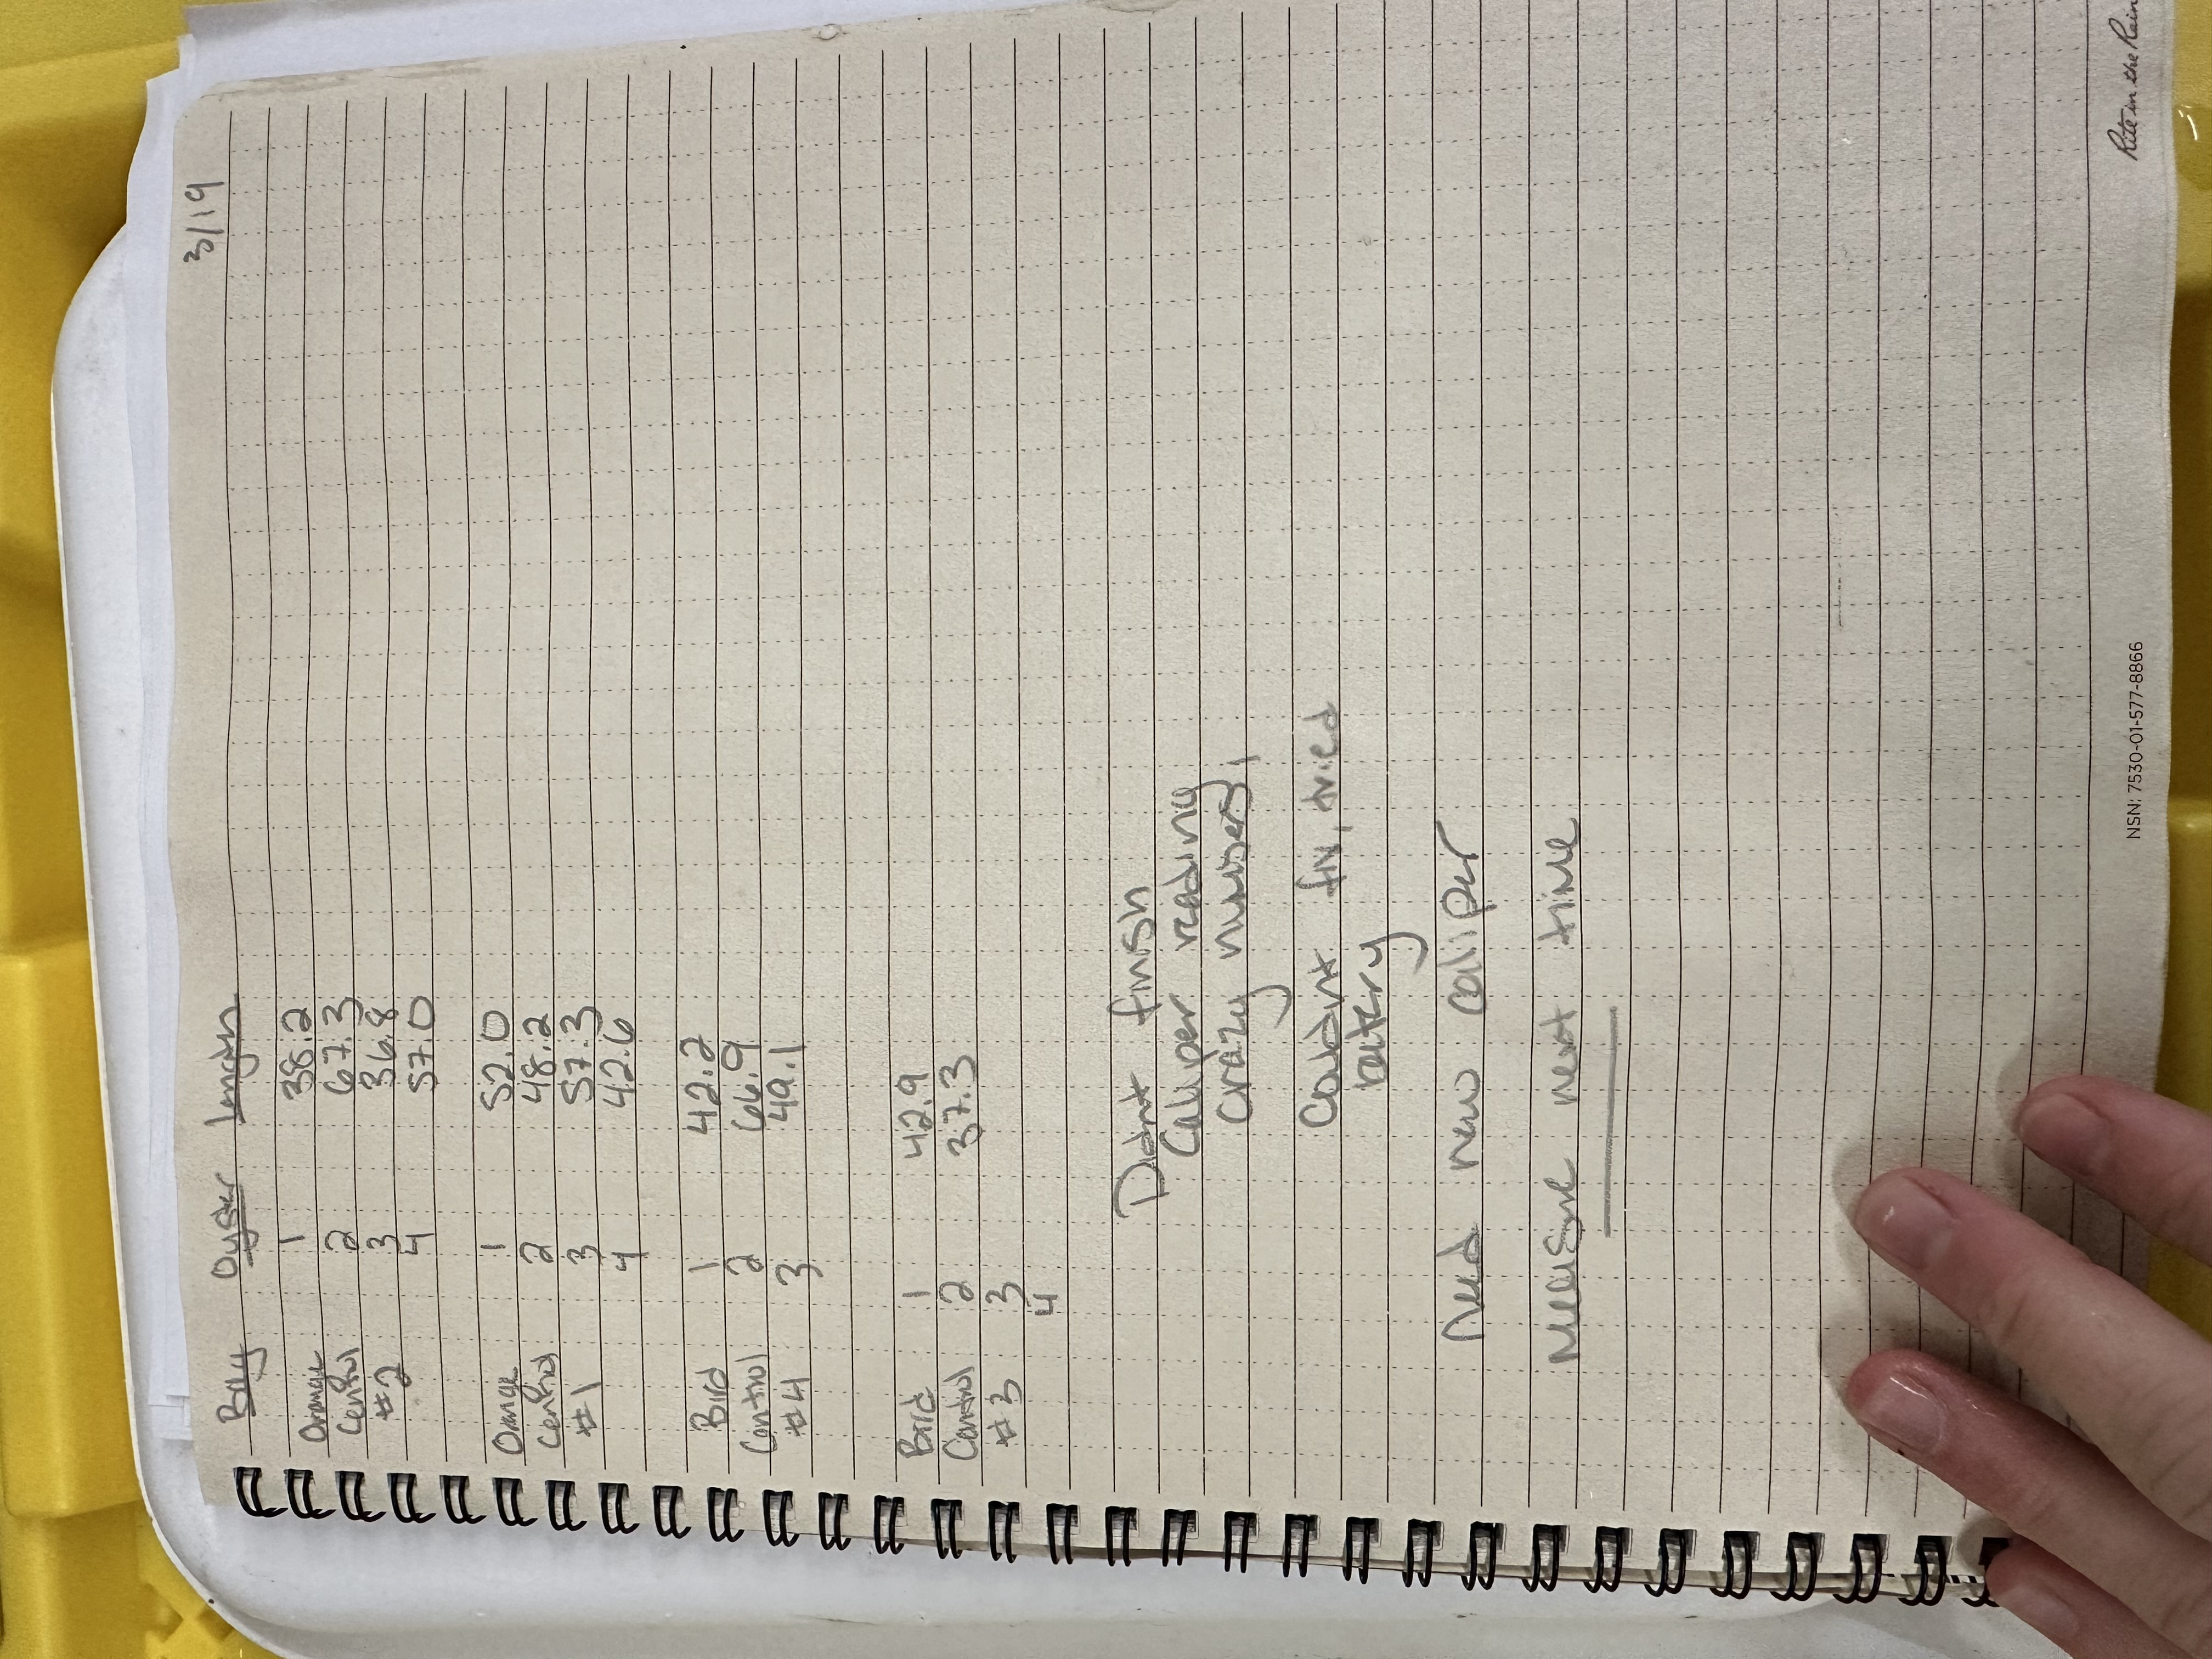 3/19
Bag Oyster Length
1 38.2
Orange
Control 2 67.3
#2 3 36.8
4 57.0
Orange 1 52.0
Control 2 48.2
#1 3 57.3
4 42.6
Bird 1 42.2
Control 2 66.9
#4 3 49.1
Bird 1 42.9
Control 2 37.3
#3 3
4
Didnt finish
Caliper reading
crazy numbers,
Couldnt fix, tried
battery
Need new caliper
measure next time
NSN: 7530-01-577-8866
Rite in the Rain